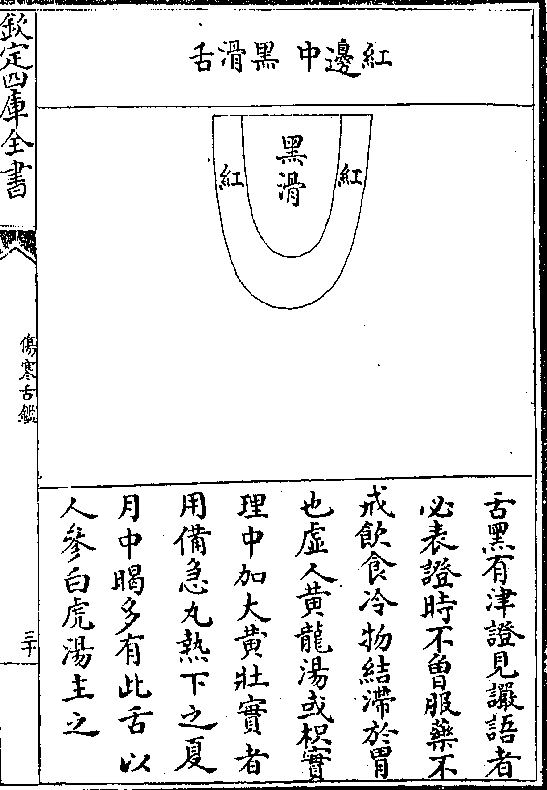 紅邊中黑滑舌
紅
黑滑
紅
舌黑有津證見讝語者
必表證時不曾服藥不
戒飲食冷物結滯於胃
也虛人黃龍湯或枳實
理中加大黃壯實者
用備急丸熱下之夏
月中暍多有此舌以
人參白虎湯主之
欽定四庫全書
傷寒舌鑑
三十